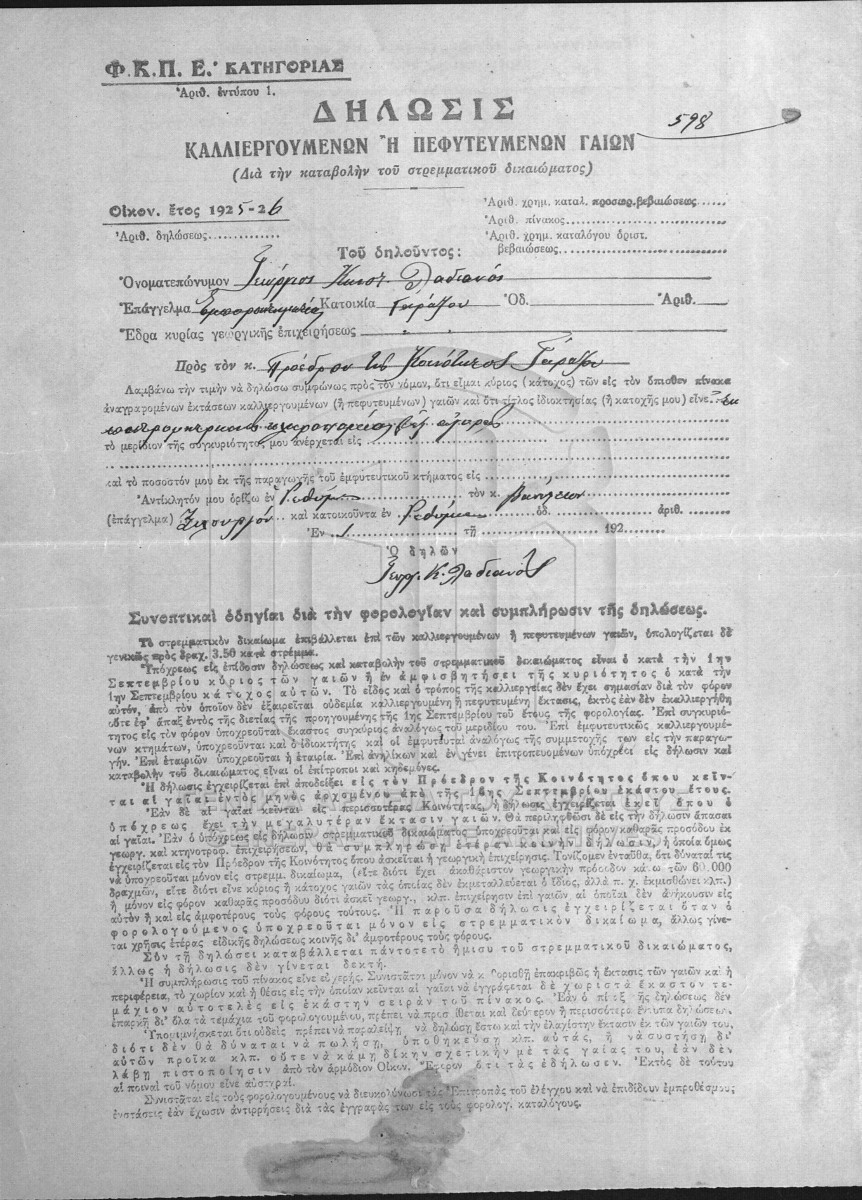 Φ.Κ.Π. Ε.' ΚΑΤΗΓΟΡΙΑΣ
Ἀριθ. ἐντύπου 1.
ΔΗΛΩΣΙΣ
598
ΚΑΛΛΙΕΡΓΟΥΜΕΝΩΝ Ἢ ΠΕΦΥΤΕΥΜΕΝΩΝ ΓΑΙΩΝ
(Διὰ τὴν καταβολὴν τοῦ στρεμματικοῦ δικαιώματος)
Οἰκον. ἔτος 1925-26
Ἀριθ. δηλώσεως
Ἀριθ. χρημ. καταλ. προσωρ. βεβαιώσεως
Ἀριθ. πίνακος
Ἀριθ. χρημ. καταλόγου ὁριστ.
βεβαιώσεως
Τοῦ δηλοῦντος:
Ὀνοματεπώνυμον Γεώργιος Κωνστ. Λαδιανός
Ἐπάγγελμα Κατοικία Γαράζου Ὁδ. Ἀριθ.
Ἕδρα κυρίας γεωργικῆς ἐπιχειρήσεως
Πρὸς τὸν κ. Πρόεδρον τῆς Κοινότητος Γαράζου
Λαμβάνω τὴν τιμὴν νὰ δηλώσω συμφώνως πρὸς τὸν νόμον, ὅτι εἶμαι κύριος (κάτοχος) τῶν εἰς τὸν ὄπισθεν πίνακα
ἀναγραφομένων ἐκτάσεων καλλιεργουμένων (ἢ πεφυτευμένων) γαιῶν καὶ ὅτι τίτλος ἰδιοκτησίας (ἢ κατοχῆς μου) εἶνε
τὸ μερίδιον τῆς συγκυριότητός μου ἀνέρχεται εἰς
καὶ τὸ ποσοστόν μου ἐκ τῆς παραγωγῆς τοῦ ἐμφυτευτικοῦ κτήματος εἰς
Ἀντίκλητόν μου ὁρίζω ἐν Ρεθύμνῃ τὸν κ.
(ἐπάγγελμα) Ξυλουργὸν καὶ κατοικοῦντα ἐν Ρεθύμνῃ ὁδ. ἀριθ.
Ἐν τῇ 192
Ὁ δηλῶν
Γεωργ. Κ. Λαδιανός
Συνοπτικαὶ ὁδηγίαι διὰ τὴν φορολογίαν καὶ συμπλήρωσιν τῆς δηλώσεως.
Τὸ στρεμματικὸν δικαίωμα ἐπιβάλλεται ἐπὶ τῶν καλλιεργουμένων ἢ πεφυτευμένων γαιῶν, ὑπολογίζεται δὲ
γενικῶς πρὸς δραχ. 3.50 κατὰ στρέμμα.
Ὑπόχρεως εἰς ἐπίδοσιν δηλώσεως καὶ καταβολὴν τοῦ στρεμματικοῦ δικαιώματος εἶναι ὁ κατὰ τὴν 1ην
Σεπτεμβρίου κύριος τῶν γαιῶν ἢ ἐν ἀμφισβητήσει τῆς κυριότητος ὁ κατὰ τὴν
1ην Σεπτεμβρίου κάτοχος αὐτῶν. Τὸ εἶδος καὶ ὁ τρόπος τῆς καλλιεργείας δὲν ἔχει σημασίαν διὰ τὸν φόρον
αὐτόν, ἀπὸ τὸν ὁποῖον δὲν ἐξαιρεῖται οὐδεμία καλλιεργουμένη ἢ πεφυτευμένη ἔκτασις, ἐκτὸς ἐὰν δὲν ἐκαλλιεργήθη
οὔτε ἐφ' ἅπαξ ἐντὸς τῆς διετίας τῆς προηγουμένης τῆς 1ης Σεπτεμβρίου τοῦ ἔτους τῆς φορολογίας. Ἐπὶ συγκυριό-
τητος εἰς τὸν φόρον ὑποχρεοῦται ἕκαστος συγκύριος ἀναλόγως τοῦ μεριδίου του. Ἐπὶ ἐμφυτευτικῶς καλλιεργουμέ-
νων κτημάτων, ὑποχρεοῦνται καὶ ὁ ἰδιοκτήτης καὶ οἱ ἐμφυτευταὶ ἀναλόγως τῆς συμμετοχῆς των εἰς τὴν παραγω-
γήν. Ἐπὶ ἑταιριῶν ὑποχρεοῦται ἡ ἑταιρία. Ἐπὶ ἀνηλίκων καὶ ἐν γένει ἐπιτροπευομένων ὑπόχρεοι εἰς δήλωσιν καὶ
καταβολὴν τοῦ δικαιώματος εἶναι οἱ ἐπίτροποι καὶ κηδεμόνες.
Ἡ δήλωσις ἐγχειρίζεται ἐπὶ ἀποδείξει εἰς τὸν Πρόεδρον τῆς Κοινότητος ὅπου κεῖν-
ται αἱ γαῖαι ἐντὸς μηνὸς ἀρχομένου ἀπὸ τῆς 16ης Σεπτεμβρίου ἑκάστου ἔτους.
Ἐὰν δὲ αἱ γαῖαι κεῖνται εἰς περισσοτέρας Κοινότητας, ἡ δήλωσις ἐγχειρίζεται ἐκεῖ ὅπου ὁ
ὑπόχρεως ἔχει τὴν μεγαλυτέραν ἔκτασιν γαιῶν. Θὰ περιληφθῶσι δὲ εἰς τὴν δήλωσιν ἅπασαι
αἱ γαῖαι. Ἐὰν ὁ ὑπόχρεως εἰς δήλωσιν στρεμματικοῦ δικαιώματος ὑποχρεοῦται καὶ εἰς φόρον καθαρᾶς προσόδου ἐκ
γεωργ. καὶ κτηνοτροφ. ἐπιχειρήσεων, θὰ συμπληρώσῃ ἑτέραν κοινὴν δήλωσιν, ἡ ὁποία ὅμως
ἐγχειρίζεται εἰς τὸν Πρόεδρον τῆς Κοινότητος ὅπου ἀσκεῖται ἡ γεωργικὴ ἐπιχείρησις. Τονίζομεν ἐνταῦθα, ὅτι δύναταί τις
νὰ ὑποχρεοῦται μόνον εἰς στρεμμ. δικαίωμα, (εἴτε διότι ἔχει ἀκαθάριστον γεωργικὴν πρόσοδον κάτω τῶν 60.000
δραχμῶν, εἴτε διότι εἶνε κύριος ἢ κάτοχος γαιῶν τὰς ὁποίας δὲν ἐκμεταλλεύεται ὁ ἴδιος, ἀλλὰ π. χ. ἐκμισθώνει κλπ.)
ἢ μόνον εἰς φόρον καθαρᾶς προσόδου διότι ἀσκεῖ γεωργ., κλπ. ἐπιχείρησιν ἐπὶ γαιῶν αἱ ὁποῖαι δὲν ἀνήκουσιν εἰς
αὐτὸν ἢ καὶ εἰς ἀμφοτέρους τοὺς φόρους τούτους. Ἡ παροῦσα δήλωσις ἐγχειρίζεται ὅταν ὁ
φορολογούμενος ὑποχρεοῦται μόνον εἰς στρεμματικὸν δικαίωμα, ἄλλως γίνε-
ται χρῆσις ἑτέρας εἰδικῆς δηλώσεως κοινῆς δι' ἀμφοτέρους τοὺς φόρους.
Σὺν τῇ δηλώσει καταβάλλεται πάντοτε τὸ ἥμισυ τοῦ στρεμματικοῦ δικαιώματος,
ἄλλως ἡ δήλωσις δὲν γίνεται δεκτή.
Ἡ συμπλήρωσις τοῦ πίνακος εἶνε εὐχερής. Συνιστᾶται μόνον νὰ καθορισθῇ ἐπακριβῶς ἡ ἔκτασις τῶν γαιῶν καὶ ἡ
περιφέρεια, τὸ χωρίον καὶ ἡ θέσις εἰς τὴν ὁποίαν κεῖνται αἱ γαῖαι νὰ ἐγγράφεται δὲ χωριστὰ ἕκαστον τε-
μάχιον αὐτοτελὲς εἰς ἑκάστην σειρὰν τοῦ πίνακος. Ἐὰν ὁ πίναξ τῆς δηλώσεως δὲν
ἐπαρκῇ δι' ὅλα τὰ τεμάχια τοῦ φορολογουμένου, πρέπει νὰ προστίθεται καὶ δεύτερον ἢ περισσότερα ἔντυπα δηλώσεων.
Ὑπομιμνήσκεται ὅτι οὐδεὶς πρέπει νὰ παραλείψῃ νὰ δηλώσῃ ἔστω καὶ τὴν ἐλαχίστην ἔκτασιν ἐκ τῶν γαιῶν του,
διότι δὲν θὰ δύναται νὰ πωλήσῃ, ὑποθηκεύσῃ κλπ. αὐτάς, ἢ νὰ συστήσῃ δι'
αὐτῶν προῖκα κλπ. οὔτε νὰ κάμῃ δίκην σχετικὴν μὲ τὰς γαίας του, ἐὰν δὲν
λάβῃ πιστοποίησιν ἀπὸ τὸν ἁρμόδιον Οἰκον. Ἔφορον ὅτι τὰς ἐδήλωσεν. Ἐκτὸς δὲ τούτου
αἱ ποιναὶ τοῦ νόμου εἶνε αὐστηραί.
Συνιστᾶται εἰς τοὺς φορολογουμένους νὰ διευκολύνωσι τὰς Ἐπιτροπὰς τοῦ ἐλέγχου καὶ νὰ ἐπιδίδουν ἐμπροθέσμως
ἐνστάσεις ἐὰν ἔχωσιν ἀντιρρήσεις διὰ τὰς ἐγγραφάς των εἰς τοὺς φορολογ. καταλόγους.